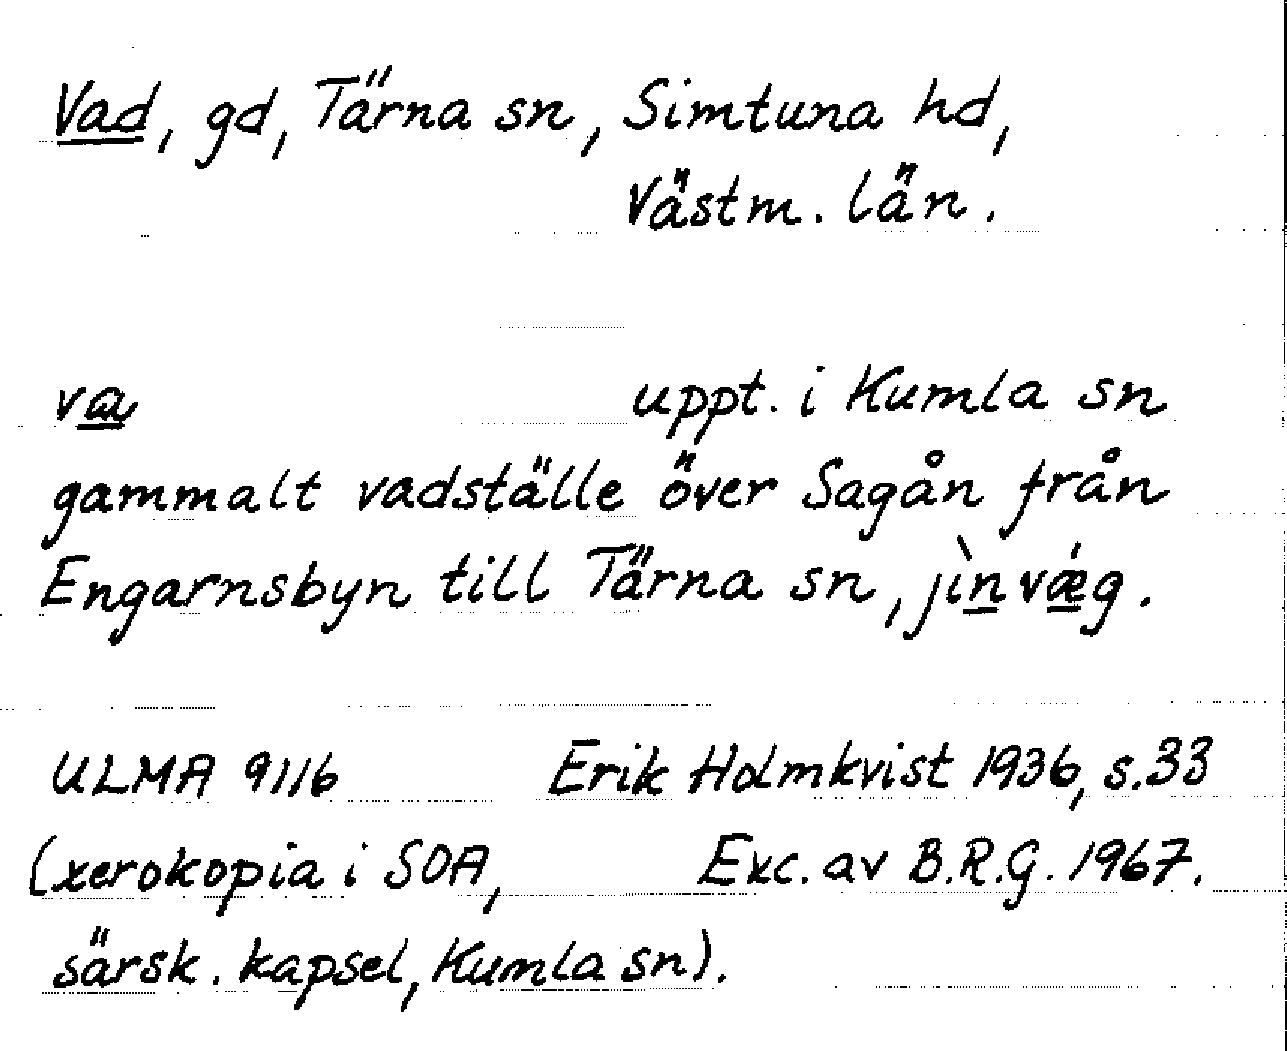 Vad, gd, Tärna sn, Simtuna hd,
Västm. län.
va uppt. i Kumla sn
gammalt vadställe över Sagån från
Engarnsbyn till Tärna sn, jìnvǽg.
ULMA 9116 Erik Holmkvist 1936, s.33
(xerokopia i SOA, Exc. av B.R.G. 1967.
särsk. kapsel, Kumla sn).